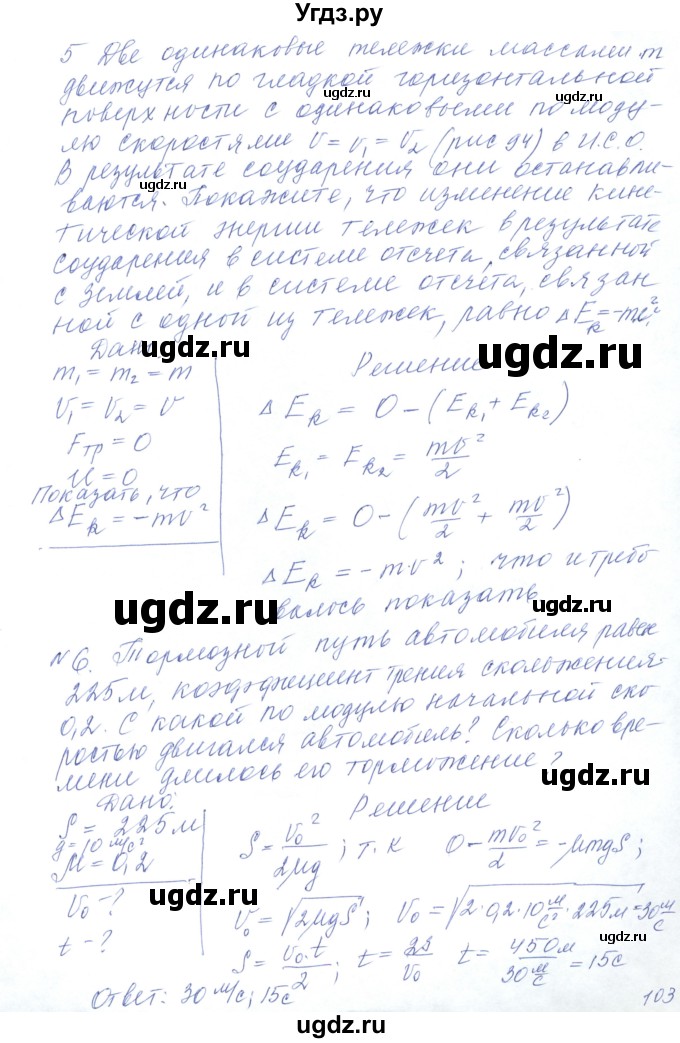 Угдз.ру
5 Две одинаковые тележки массами m
движутся по гладкой горизонтальной
поверхности с одинаковыми по моду-
лю скоростями υ = υ₁ = υ₂ (рис 94) в И.С.О.
В результате соударения они останавли-
ваются. Покажите, что изменение кине-
тической энергии тележек в результате
соударения в системе отсчета, связанной
с Землей, и в системе отсчёта, связан
ной с одной из тележек, равно ΔE_k = -mυ₁²
Дано
m₁ = m₂ = m
υ₁ = υ₂ = υ
Fтр = 0
μ = 0
Показать, что
ΔE_k = -mυ²
Решение
ΔE_k = 0 - (E_k₁ + E_k₂)
E_k₁ = E_k₂ = mυ²/2
ΔE_k = 0 - (mυ²/2 + mυ²/2)
ΔE_k = -mυ²; что и требо
валось показать
N6. Тормозной путь автомобиля равен
225м, коэффициент трения скольжения-
0,2. С какой по модулю начальной ско
ростью двигался автомобиль? Сколько вре-
мени длилось его торможение?
Дано:
S = 225м
g = 10 м/с²
μ = 0,2
υ₀ - ?
t - ?
Решение
S = υ₀²/2μg; т.к 0 - mυ₀²/2 = -μmgS;
υ₀ = √2μgS; υ₀ = √2·0,2·10 м/с²·225м = 30 м/с
S = υ₀·t/2; t = 2S/υ₀ t = 450м/30 м/с = 15с
Ответ: 30 м/с; 15с
103
ugdz.ru
ugdz.ru
ugdz.ru
ugdz.ru
ugdz.ru
ugdz.ru
ugdz.ru
ugdz.ru
ugdz.ru
ugdz.ru
ugdz.ru
ugdz.ru
ugdz.ru
ugdz.ru